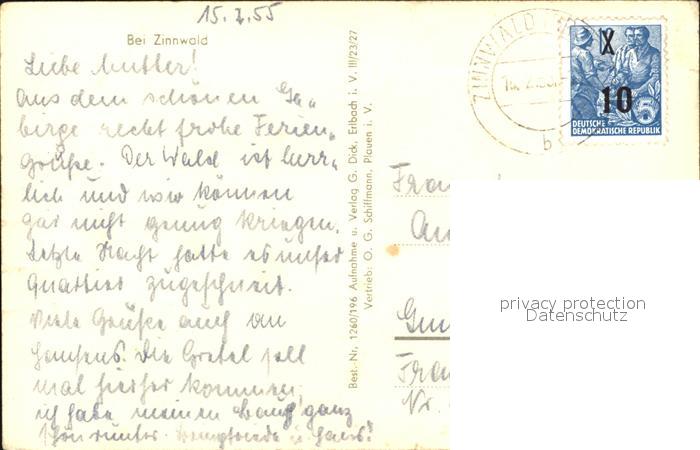 15.2.55
Bei Zinnwald
Liebe Mutter!
Aus dem schönen Ge„
birge recht frohe Ferien„
grüße. Der Wald ist herr„
lich und wir können
gar nicht genug kriegen.
Letzte Nacht hatte es unser
Quartier zugeschneit.
Viele Grüße auch an
Die Gretel soll
mal hierher kommen,
ich habe meinen Bauch ganz
schön runter. u. Hans!
Best.-Nr. 1260/196 Aufnahme u. Verlag G. Dick, Erlbach i. V. III/23/27
Vertrieb: O. G. Schiffmann, Plauen i. V.
ZINNWALD
b
X
10
5
DEUTSCHE
DEMOKRATISCHE REPUBLIK
Frau
An
Gm
Frau
Nr.
privacy protection
Datenschutz